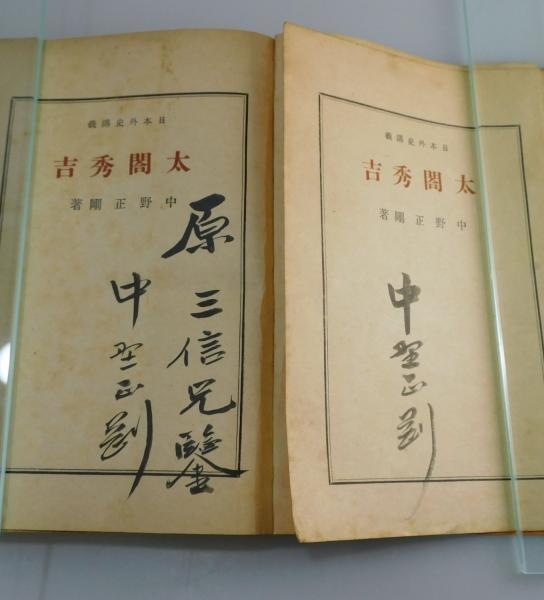 日本外史講義
太閤秀吉
中野正剛著
中野正剛
日本外史講義
太閤秀吉
中野正剛著
原三信兄鑒
中野正剛